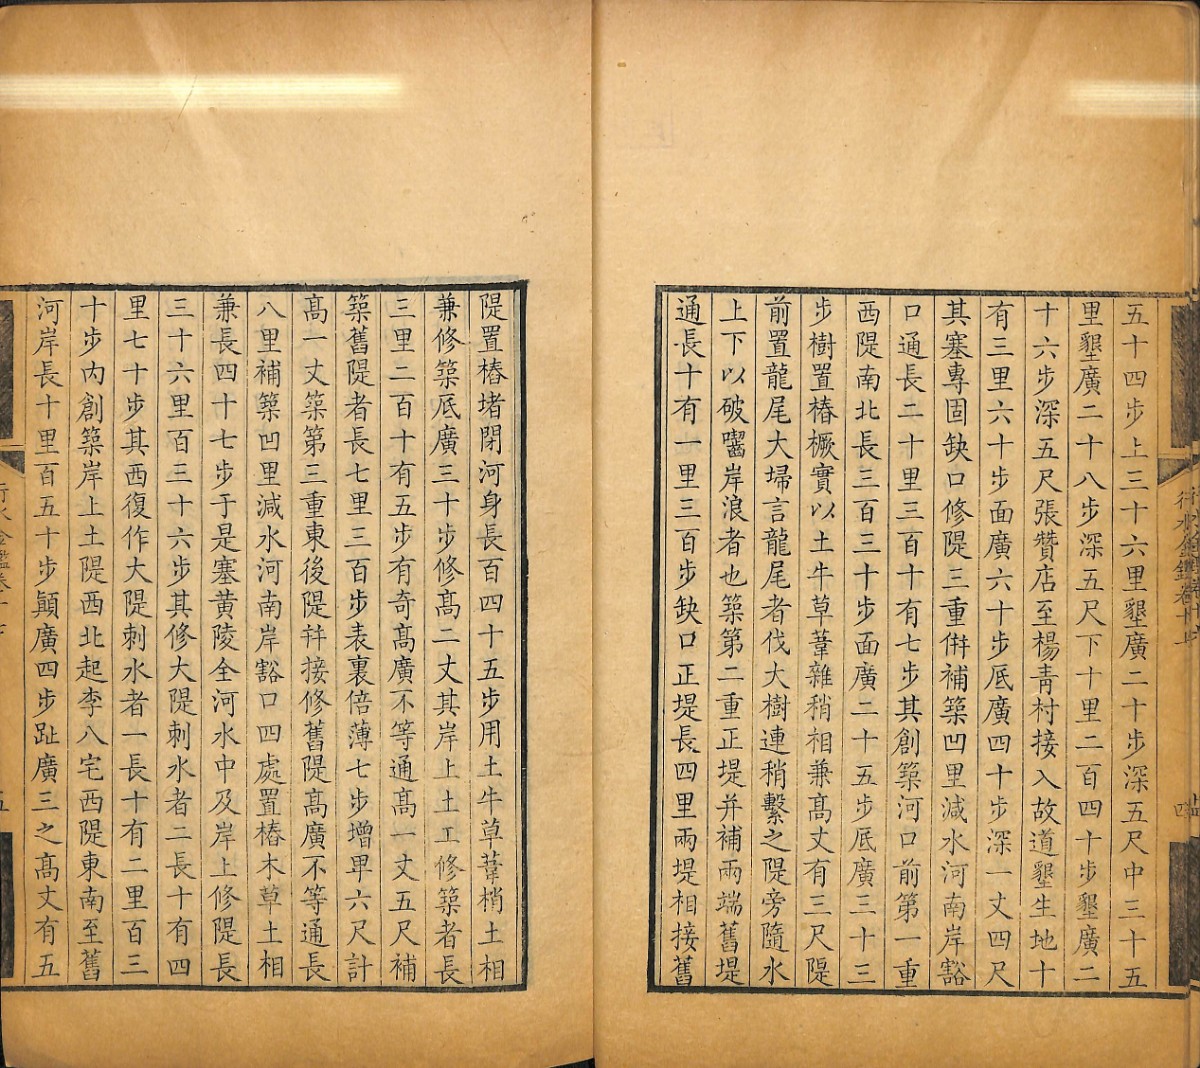 五十四步上三十六里墾廣二十步深五尺中三十五
里墾廣二十八步深五尺下十里二百四十步墾廣二
十六步深五尺張贊店至楊青村接入故道墾生地十
有三里六十步面廣六十步底廣四十步深一丈四尺
其塞專固缺口修隄三重併補築凹里減水河南岸豁
口通長二十里三百十有七步其創築河口前第一重
西隄南北長三百三十步面廣二十五步底廣三十三
步樹置樁橛實以土牛草葦雜稍相兼高丈有三尺隄
前置龍尾大埽言龍尾者伐大樹連稍繫之隄旁隨水
上下以破囓岸浪者也築第二重正堤并補兩端舊堤
通長十有一里三百步缺口正堤長四里兩堤相接舊
隄置樁堵閉河身長百四十五步用土牛草葦梢土相
兼修築底廣三十步修高二丈其岸上土工修築者長
三里二百十有五步有奇高廣不等通高一丈五尺補
築舊隄者長七里三百步表裏倍薄七步增卑六尺計
高一丈築第三重東後隄并接修舊隄高廣不等通長
八里補築凹里減水河南岸豁口四處置樁木草土相
兼長四十七步于是塞黃陵全河水中及岸上修隄長
三十六里百三十六步其修大隄刺水者二長十有四
里七十步其西復作大隄刺水者一長十有二里百三
十步內創築岸上土隄西北起李八宅西隄東南至舊
河岸長十里百五十步顛廣四步趾廣三之高丈有五